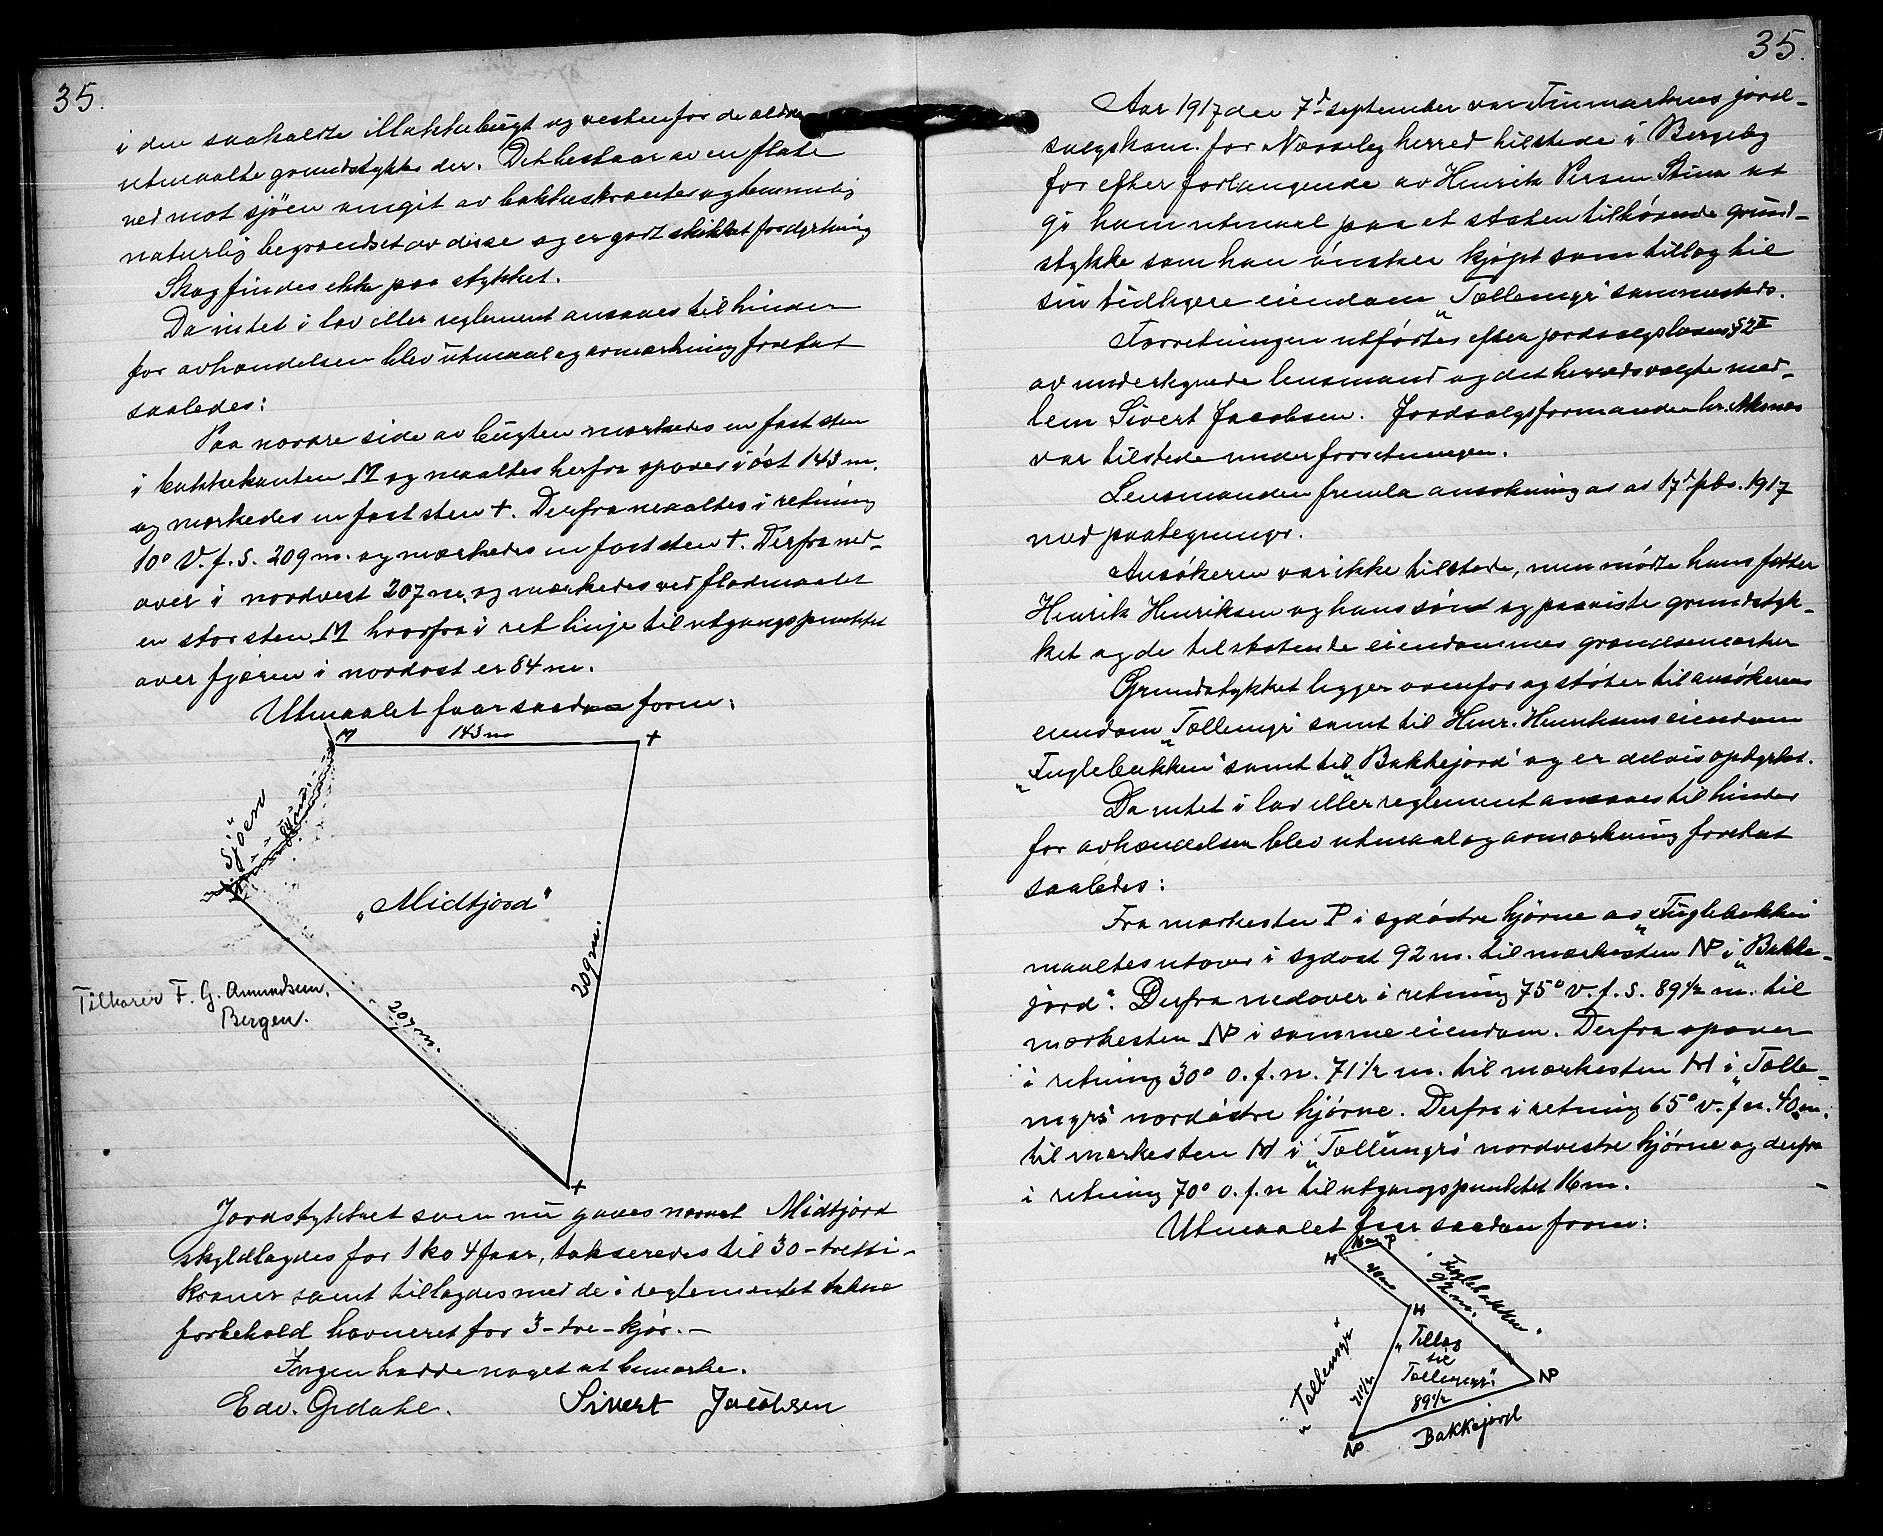 35.
i den saakaldte Makkebugt og vestenfor de ældre
utmaalte grundstykke der. Det bestaar av en flate
ned mot sjöen omgit av bakkeskrænter og temmelig
naturlig begrændset av disse og er godt skikket for dyrkning
Skog findes ikke paa stykket.
Da intet i lov eller reglement ansaaes til hinder
for avhændelsen blev utmaal og avmærkning foretat
saaledes:
Paa nordre side av bugten merkedes en fast sten
i bakkekanten M og maaltes herfra opover i öst 143 m.
og merkedes en fast sten +. Derfra maaltes i retning
10° V.f.S. 209 m. og mærkedes en fast sten +. Derfra ned-
over i nordvest 207 m. og mærkedes ved flodmaalet
en stor sten M hvorfra i ret linje til utgangspunktet
over fjæren i nordost er 84 m.
Utmaalet faar saadan form:
M 143 m +
Sjöen
„Midtjord"
209 m.
207 m.
Tilhører F. G. Amundsen,
Bergen.
+
Jordstykket som nu gaves navnet Midtjord
skyldlagdes for 1 ko 4 faar, takseredes til 30 - tretti -
kroner samt tillagdes med de i reglementet tatne
forbehold havneret for 3 - tre - kjör. -
Ingen hadde noget at bemærke.
Edv. Grdahl. Sivert Jacobsen
35.
Aar 1917 den 7d september var Finmarkens jord-
salgskom. for Næsseby herred tilstede i Bergeby
for efter forlangende av Henrik Persen Stina at
gi ham utmaal paa et staten tilhörende grund-
stykke som han önsker kjöpt som tillæg til
sin tidligere eiendom „Tollemyr" sammesteds.
Forretningen utförtes efter jordsalgsloven § 2 I
av underlignede lensmand og det herredsvalgte med-
lem Sivert Jacobsen. Jordsalgsformanden hr. Aksnes
var tilstede under forretningen.
Lensmanden fremla ansökning av 17d febr. 1917
med paategninger.
Ansökeren var ikke tilstede, men mödte hans fætter
Henrik Henriksen og hans sön og paaviste grundstyk-
ket og de tilstötende eiendommes grændsemærker
Grundstykket ligger ovenfor og stöter til ansökerens
eiendom „Tollemyr" samt til Henr. Henriksens eiendom
„Fuglebakken" samt til „Bakkejord" og er delvis opdyrket.
Da intet i lov eller reglement ansaaes til hinder
for avhændelsen blev utmaal og avmærkning foretat
saaledes:
Fra merkesten P i sydöstre hjörne av „Fuglebakken"
maaltes utover i sydost 92 m. til merkesten NP i „Bakke-
jord". Derfra nedover i retning 75° v.f.s. 89 1/2 m. til
merkesten NP i samme eiendom. Derfra opover
i retning 30° o.f.n. 71 1/2 m. til merkesten H i „Tolle-
myrs" nordöstre hjörne. Derfra i retning 65° v.f.n. 40 m.
til merkesten H i „Tollemyrs" nordvestre hjörne og derfra
i retning 70° o.f.n til utgangspunktet 16 m.
Utmaalet faar saadan form:
H 16 m P
40 m
„Fuglebakken"
92 m.
H
„Tollemyr"
„Tillæg
til
Tollemyr"
71 1/2
89 1/2
NP
NP
Bakkejord